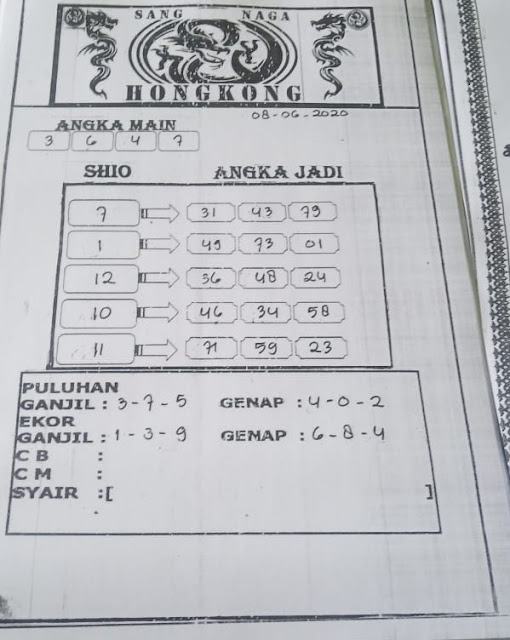 SANG NAGA
HONGKONG
08-06-2020
ANGKA MAIN
3 6 4 7
SHIO ANGKA JADI
7 31 43 79
1 49 73 01
12 36 48 24
10 46 34 58
11 71 59 23
PULUHAN
GANJIL : 3-7-5 GENAP : 4-0-2
EKOR
GANJIL : 1-3-9 GENAP : 6-8-4
C B :
C M :
SYAIR :[ ]